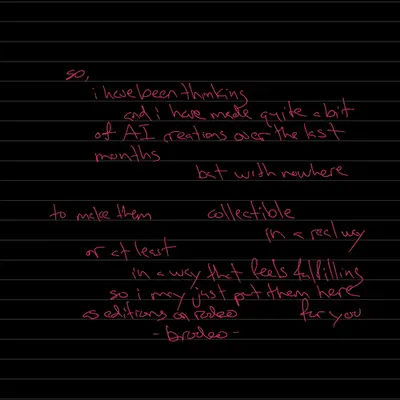 so,
i have been thinking
and i have made quite a bit
of AI creations over the last
months
but with nowhere
to make them collectible
in a real way
or at least
in a way that feels fulfilling
so i may just put them here
as editions on rodeo for you
- brodeo -